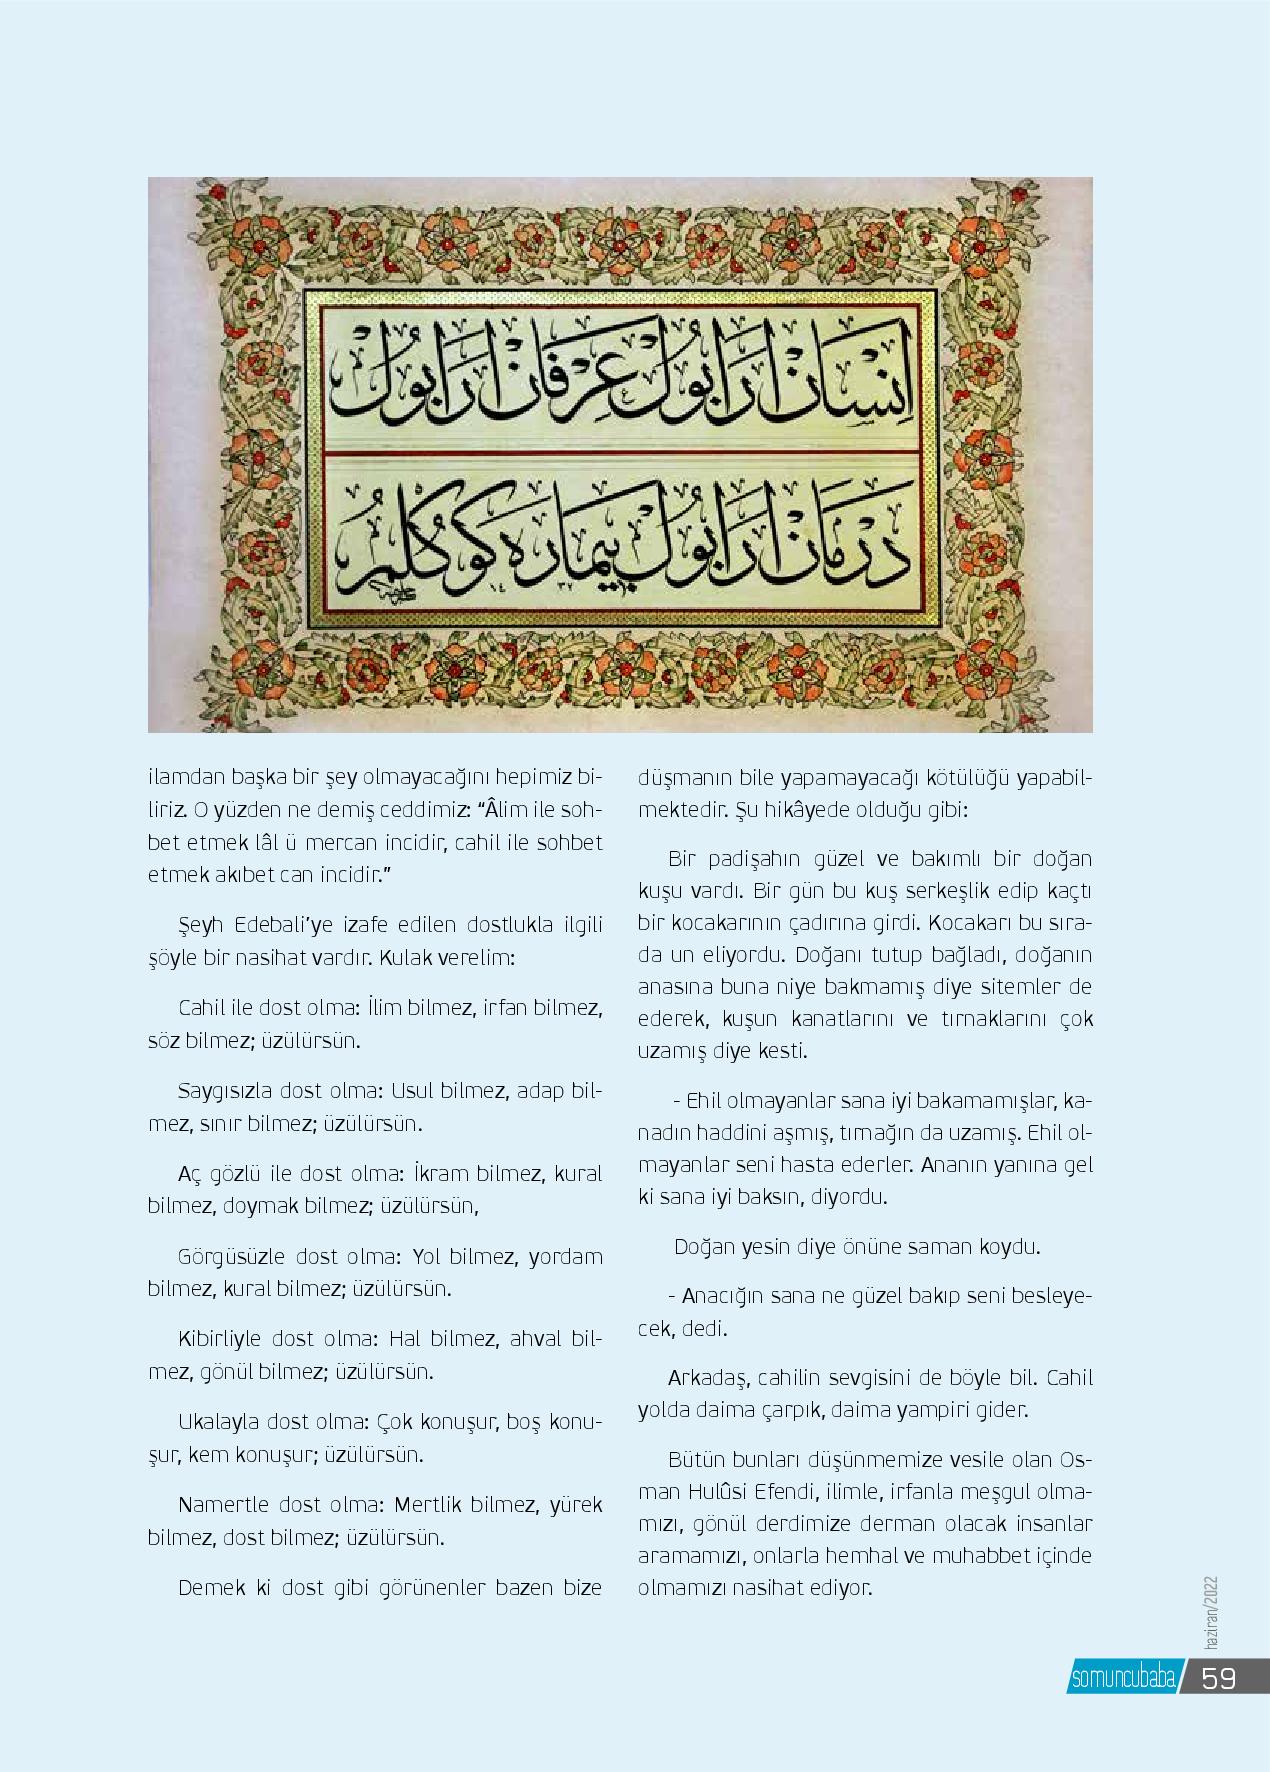 اِنْسَانْ اَرَا بُولْ عِرْفَانْ اَرَا بُولْ
دَرْمَانْ اَرَا بُولْ بِيمَارَه كُوكُلُمْ
١٤ ٣٢
ilamdan başka bir şey olmayacağını hepimiz bi-
liriz. O yüzden ne demiş ceddimiz: “Âlim ile soh-
bet etmek lâl ü mercan incidir, cahil ile sohbet
etmek akıbet can incidir.”
Şeyh Edebali’ye izafe edilen dostlukla ilgili
şöyle bir nasihat vardır. Kulak verelim:
Cahil ile dost olma: İlim bilmez, irfan bilmez,
söz bilmez; üzülürsün.
Saygısızla dost olma: Usul bilmez, adap bil-
mez, sınır bilmez; üzülürsün.
Aç gözlü ile dost olma: İkram bilmez, kural
bilmez, doymak bilmez; üzülürsün,
Görgüsüzle dost olma: Yol bilmez, yordam
bilmez, kural bilmez; üzülürsün.
Kibirliyle dost olma: Hal bilmez, ahval bil-
mez, gönül bilmez; üzülürsün.
Ukalayla dost olma: Çok konuşur, boş konu-
şur, kem konuşur; üzülürsün.
Namertle dost olma: Mertlik bilmez, yürek
bilmez, dost bilmez; üzülürsün.
Demek ki dost gibi görünenler bazen bize
düşmanın bile yapamayacağı kötülüğü yapabil-
mektedir. Şu hikâyede olduğu gibi:
Bir padişahın güzel ve bakımlı bir doğan
kuşu vardı. Bir gün bu kuş serkeşlik edip kaçtı
bir kocakarının çadırına girdi. Kocakarı bu sıra-
da un eliyordu. Doğanı tutup bağladı, doğanın
anasına buna niye bakmamış diye sitemler de
ederek, kuşun kanatlarını ve tırnaklarını çok
uzamış diye kesti.
- Ehil olmayanlar sana iyi bakamamışlar, ka-
nadın haddini aşmış, tırnağın da uzamış. Ehil ol-
mayanlar seni hasta ederler. Ananın yanına gel
ki sana iyi baksın, diyordu.
Doğan yesin diye önüne saman koydu.
- Anacığın sana ne güzel bakıp seni besleye-
cek, dedi.
Arkadaş, cahilin sevgisini de böyle bil. Cahil
yolda daima çarpık, daima yampiri gider.
Bütün bunları düşünmemize vesile olan Os-
man Hulûsi Efendi, ilimle, irfanla meşgul olma-
mızı, gönül derdimize derman olacak insanlar
aramamızı, onlarla hemhal ve muhabbet içinde
olmamızı nasihat ediyor.
haziran/2022
somuncubaba 59